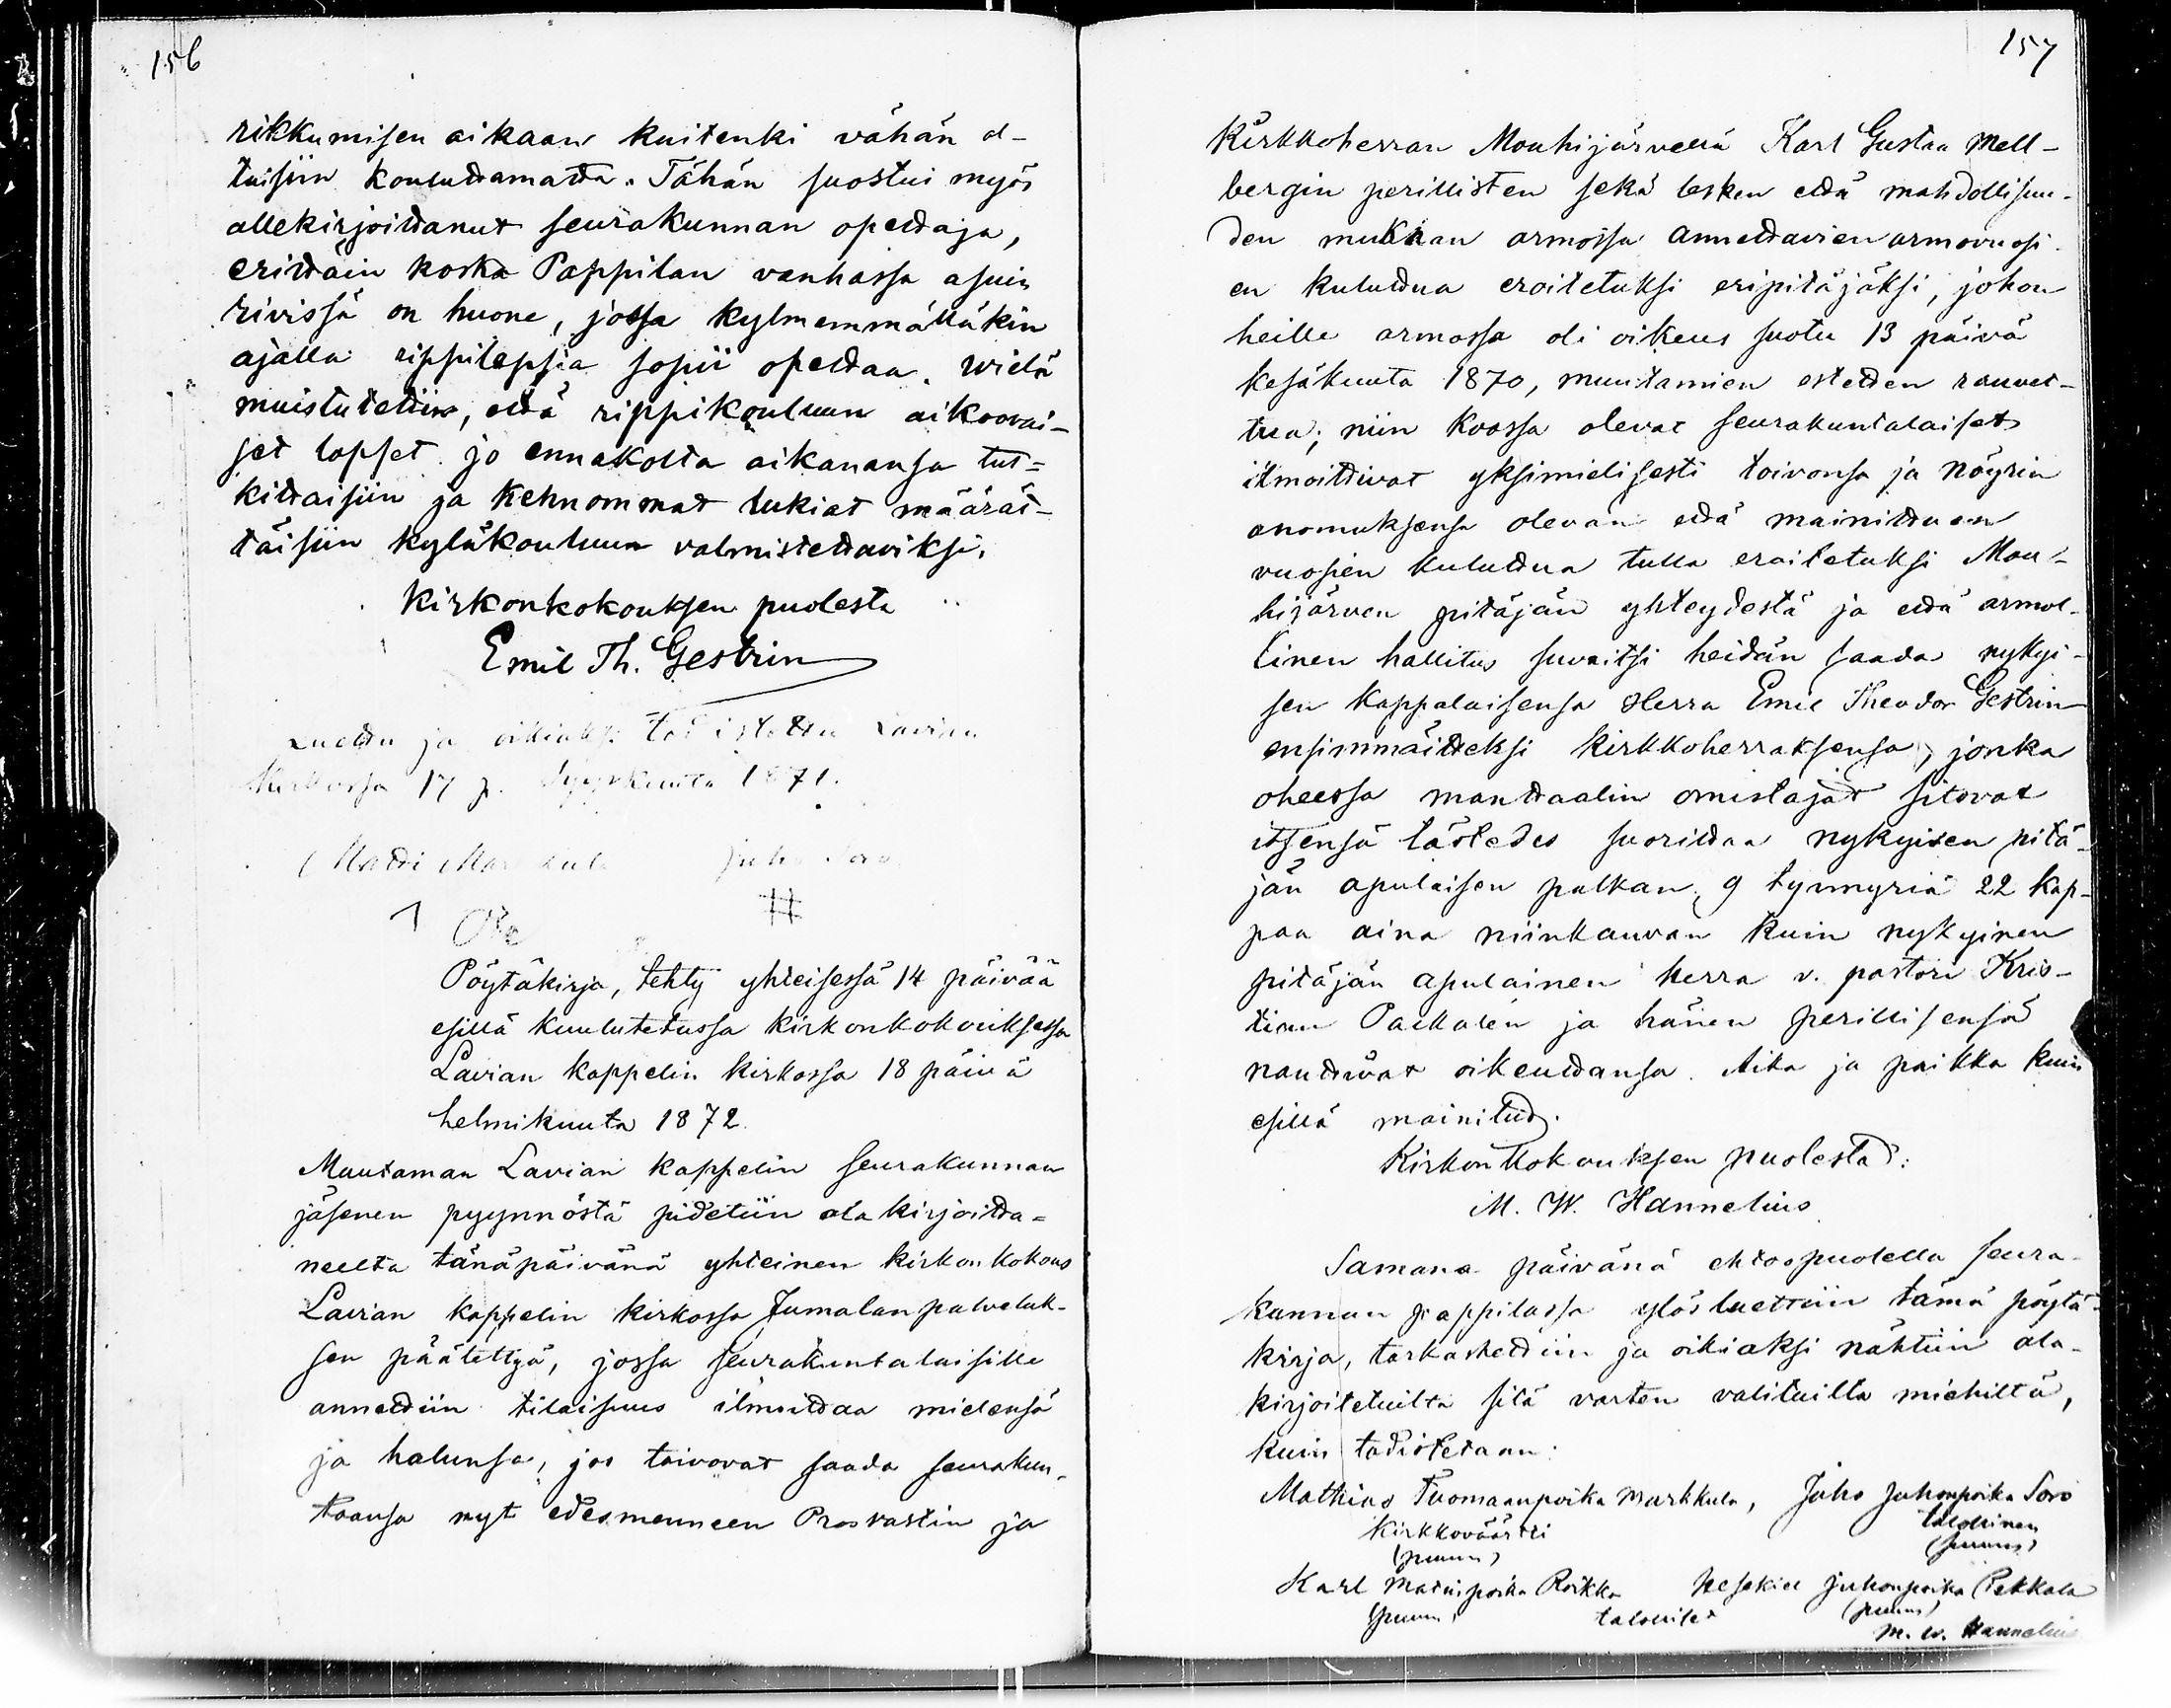 156
rikkumisen aikaan kuitenki vähän ol-
taisiin kouluttamatta. Tähän suostui myös
allekirjoittanut seurakunnan opettaja,
erittäin koska Pappilan vanhassa asuin
rivissä on huone, jossa kylmemmälläkin
ajalla rippilapsia sopii opettaa. Wielä
muistutettiin, että rippikouluun aikoovai-
set lapset jo ennakolta aikanansa tut-
kittaisiin ja kehnommat lukiat määrät-
täisiin kyläkouluun valmistettaviksi.
Kirkonkokouksen puolesta
Emil Th. Gestrin
Luettu ja oikiaksi todistettu Lavian
Kirkossa 17 p. Syyskuuta 1871.
Matti Juho
Pöytäkirja, tehty yhteisessä 14 päivää
esillä kuulutetussa kirkonkokouksessa
Lavian kappelin kirkossa 18 päivä
helmikuuta 1872.
Muutaman Lavian kappelin seurakunnan
jäsenen pyynnöstä pidetiin alakirjoitta-
neelta tänäpäivänä yhteinen kirkonkokous
Lavian kappelin kirkossa Jumalanpalveluk-
sen päätettyä, jossa seurakuntalaisille
annettiin tilaisuus ilmoittaa mielensä
ja halunsa, jos toivovat saada seurakun-
taansa nyt edesmenneen Provastin ja
157
Kirkkoherran Mouhijärvellä Karl Gustaa Mell-
bergin perillisten sekä lesken että mahdollisuu-
den mukaan armossa annettavien armovuosi-
en kuluttua eroitetuksi eripitäjäksi, johon
heille armossa oli oikeus suotu 13 päivä
kesäkuuta 1870, muutamien estetten rauvet-
tua; niin koossa olevat seurakuntalaiset
ilmoittivat yksimielisesti toivonsa ja nöyrin
anomuksensa olevan että mainittuen
vuosien kuluttua tulla eroitetuksi Mou-
hijärven pitäjän yhteydestä ja että armol-
linen hallitus suvaitsi heidän saada nykyi-
sen Kappalaisensa Herra Emil Theodor Gestrin
ensimmäiteksi kirkkoherraksensa, jonka
oheessa manttaalin omistajat sitovat
itsensä täsledes suorittaa nykyisen pitä-
jän apulaisen palkan, 9 tynnyriä 22 kap-
paa aina niinkauvan kuin nykyinen
pitäjän apulainen herra v. pastori Kris-
tian Packalén ja hänen perillisensä
nauttivat oikeuttansa. Aika ja paikka kuin
esillä mainitut.
Kirkonkokouksen puolesta:
M. W. Hannelius
Samana päivänä ehtoopuolella seura-
kunnan pappilassa ylösluettiin tämä pöytä-
kirja, tarkastettiin ja oikiaksi nähtiin ala-
kirjoitetuilta sitä varten valituilta miehiltä,
kuin todistetaan:
Mathias Tuomaanpoika Markkula, Juho Juhonpoika Soro
Kirkkoväärtti talollinen
(puum) (puum)
Karl Matinpoika Roikka Hesekiel Juhonpoika Pekkala
(puum) talolliset (puum)
M. W. Hannelius